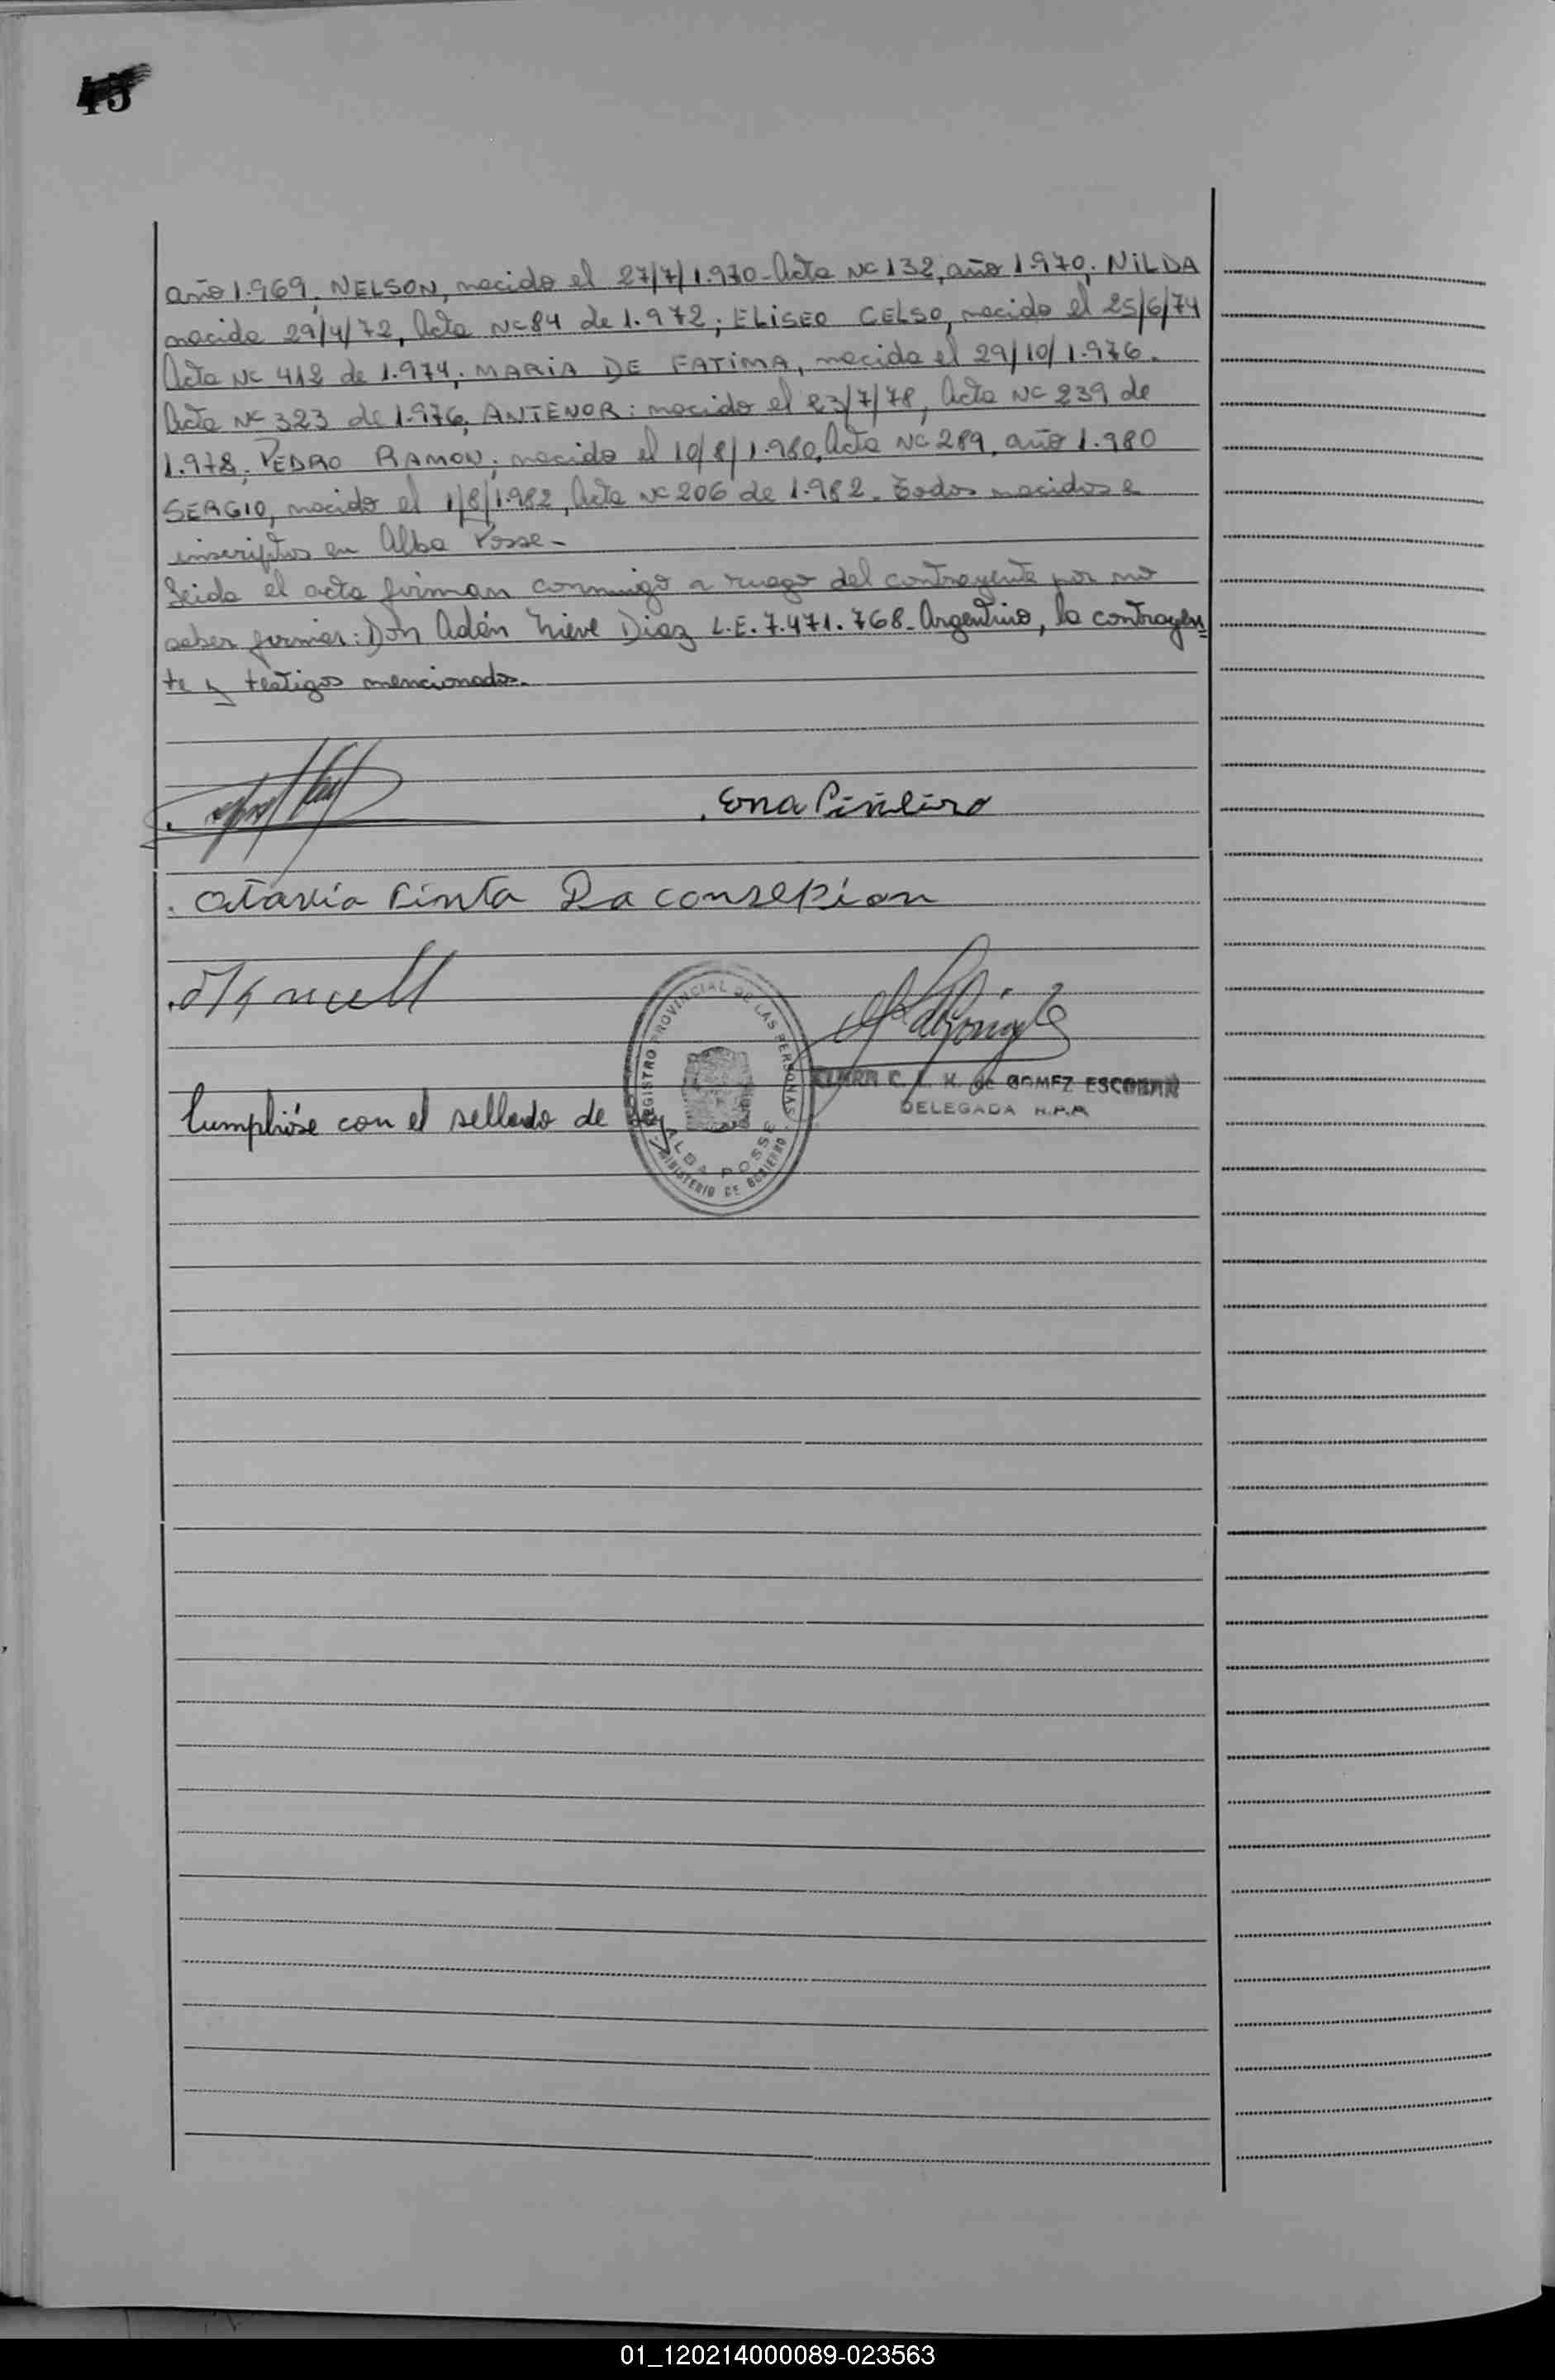 45
año 1.969, NELSON, nacido el 27/7/1.970 - Acta Nº 132, año 1.970; NILDA
nacida 29/4/72, Acta Nº 84 de 1.972; ELISEO CELSO, nacido el 25/6/74
Acta Nº 412 de 1.974; MARIA DE FATIMA, nacida el 29/10/1.976.
Acta Nº 323 de 1.976, ANTENOR: nacido el 23/7/78, Acta Nº 239 de
1.978; PEDRO RAMON; nacido el 10/8/1.980, Acta Nº 289, año 1.980
SERGIO, nacido el 1/8/1.982, Acta Nº 206 de 1.982. Todos nacidos e
inscriptos en Alba Posse -
Leida el acta firman conmigo a ruego del contrayente por no
saber firmar: Don Adán Nieve Diaz L.E. 7.471.768 - Argentino, la contrayen=
te y testigos mencionados.
Ena Piñeiro
Otavia Pinta Da consepion
REGISTRO PROVINCIAL DE LAS PERSONAS
ALBA POSSE
MINISTERIO DE GOBIERNO
C. K. de GOMEZ ESCOBAR
DELEGADA R.P.P.
Cumplióse con el sellado de ley
01_120214000089-023563